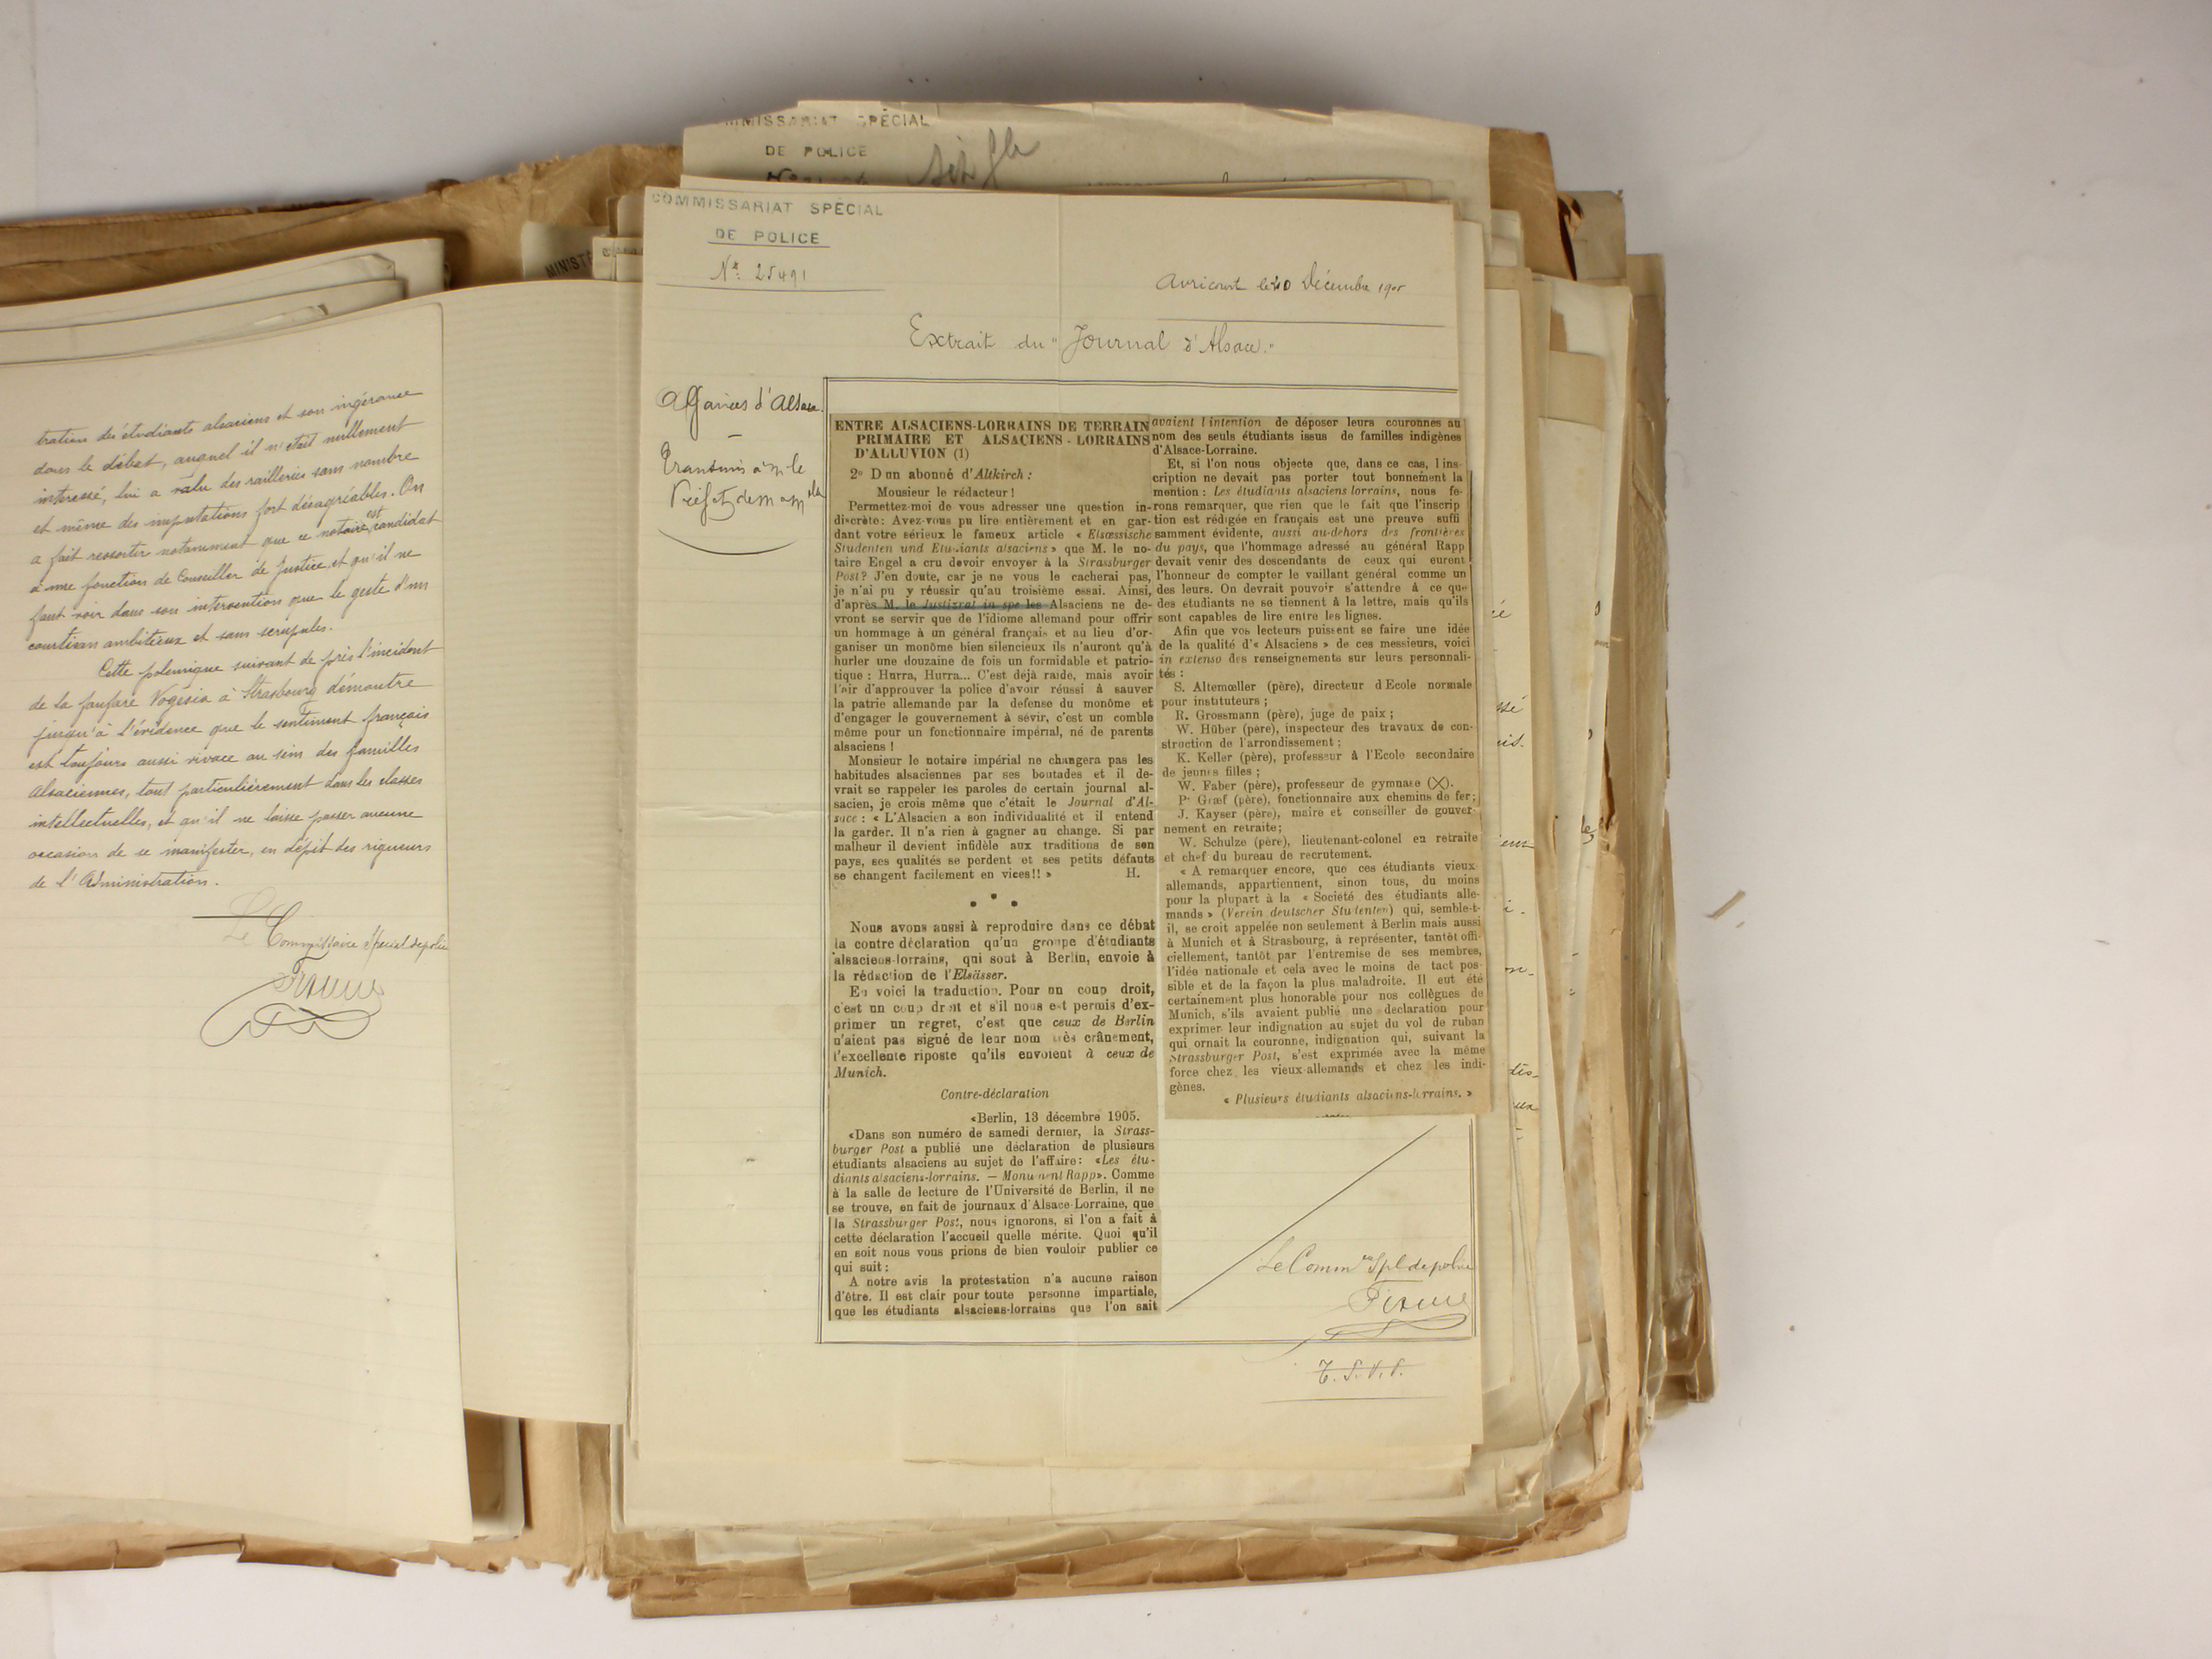 tration des étudiants alsaciens et son ingérance
dans le débat, auquel il n'était nullement
intéressé, lui a valu des railleries sans nombre
et même des imputations fort désagréables. On
a fait ressortir notamment que ce notaire est candidat
à une fonction de Conseiller de Justice, et qu'il ne
faut voir dans son intervention que le geste d'un
courtisan ambitieux et sans scrupules.
Cette polémique suivant de près l'incident
de la fanfare Vogésia à Strasbourg démontre
jusqu'à l'évidence que le sentiment français
est toujours aussi vivace au sein des familles
Alsaciennes, tout particulièrement dans les classes
intellectuelles, et qu'il ne laisse passer aucune
occasion de se manifester, en dépit des rigueurs
de l'Administration.
Le Commissaire spécial de police
MMISSARIAT SPÉCIAL
DE POLICE
MINIST
COMMISSARIAT SPÉCIAL
DE POLICE
No. 25491
Avricourt le 20 Décembre 1905
Extrait du "Journal d'Alsace."
Affaires d'Alsace.
Transmis à M. le
Préfet de M et Mlle
ENTRE ALSACIENS-LORRAINS DE TERRAIN
PRIMAIRE ET ALSACIENS-LORRAINS
D'ALLUVION (1)
2o D un abonné d'Altkirch :
Monsieur le rédacteur !
Permettez-moi de vous adresser une question in-
discrète: Avez-vous pu lire entièrement et en gar-
dant votre sérieux le fameux article « Elsæssische
Studenten und Etudiants alsaciens » que M. le no-
taire Engel a cru devoir envoyer à la Strassburger
Post? J'en doute, car je ne vous le cacherai pas,
je n'ai pu y réussir qu'au troisième essai. Ainsi,
d'après M. le Justizrat in spe les Alsaciens ne de-
vront se servir que de l'idiome allemand pour offrir
un hommage à un général français et au lieu d'or-
ganiser un monôme bien silencieux ils n'auront qu'à
hurler une douzaine de fois un formidable et patrio-
tique : Hurra, Hurra... C'est déjà raide, mais avoir
l'air d'approuver la police d'avoir réussi à sauver
la patrie allemande par la defense du monôme et
d'engager le gouvernement à sévir, c'est un comble
même pour un fonctionnaire impérial, né de parents
alsaciens !
Monsieur le notaire impérial ne changera pas les
habitudes alsaciennes par ses boutades et il de-
vrait se rappeler les paroles de certain journal al-
sacien, je crois même que c'était le Journal d'Al-
sace : « L'Alsacien a son individualité et il entend
la garder. Il n'a rien à gagner au change. Si par
malheur il devient infidèle aux traditions de son
pays, ses qualités se perdent et ses petits défauts
se changent facilement en vices!! » H.
Nous avons aussi à reproduire dans ce débat
la contre déclaration qu'un groupe d'étudiants
alsaciens-lorrains, qui sont à Berlin, envoie à
la rédaction de l'Elsässer.
En voici la traduction. Pour un coup droit,
c'est un coup droit et s'il nous est permis d'ex-
primer un regret, c'est que ceux de Berlin
n'aient pas signé de leur nom très crânement,
l'excellente riposte qu'ils envoient à ceux de
Munich.
Contre-déclaration
«Berlin, 13 décembre 1905.
«Dans son numéro de samedi dernier, la Strass-
burger Post a publié une déclaration de plusieurs
étudiants alsaciens au sujet de l'affaire: «Les étu-
diants alsaciens-lorrains. — Monument Rapp». Comme
à la salle de lecture de l'Université de Berlin, il ne
se trouve, en fait de journaux d'Alsace-Lorraine, que
la Strassburger Post, nous ignorons, si l'on a fait à
cette déclaration l'accueil quelle mérite. Quoi qu'il
en soit nous vous prions de bien vouloir publier ce
qui suit :
A notre avis la protestation n'a aucune raison
d'être. Il est clair pour toute personne impartiale,
que les étudiants alsaciens-lorrains que l'on sait
avaient l intention de déposer leurs couronnes au
nom des seuls étudiants issus de familles indigènes
d'Alsace-Lorraine.
Et, si l'on nous objecte que, dans ce cas, l ins-
cription ne devait pas porter tout bonnement la
mention : Les étudiants alsaciens lorrains, nous fe-
rons remarquer, que rien que le fait que l'inscrip
tion est rédigée en français est une preuve suffi
samment évidente, aussi au-dehors des frontières
du pays, que l'hommage adressé au général Rapp
devait venir des descendants de ceux qui eurent
l'honneur de compter le vaillant général comme un
des leurs. On devrait pouvoir s'attendre à ce que
des étudiants ne se tiennent à la lettre, mais qu'ils
sont capables de lire entre les lignes.
Afin que vos lecteurs puissent se faire une idée
de la qualité d'« Alsaciens » de ces messieurs, voici
in extenso des renseignements sur leurs personnali-
tés :
S. Altemœller (père), directeur d Ecole normale
pour instituteurs ;
R. Grossmann (père), juge de paix ;
W. Hüber (père), inspecteur des travaux de con-
struction de l'arrondissement ;
K. Keller (père), professeur à l'Ecole secondaire
de jeunes filles ;
W. Faber (père), professeur de gymnase (X).
P. Græf (père), fonctionnaire aux chemins de fer;
J. Kayser (père), maire et conseiller de gouver-
nement en retraite;
W. Schulze (père), lieutenant-colonel en retraite
et chef du bureau de recrutement.
« A remarquer encore, que ces étudiants vieux-
allemands, appartiennent, sinon tous, du moins
pour la plupart à la « Société des étudiants alle-
mands » (Verein deutscher Studenten) qui, semble-t-
il, se croit appelée non seulement à Berlin mais aussi
à Munich et à Strasbourg, à représenter, tantôt offi-
ciellement, tantôt par l'entremise de ses membres,
l'idée nationale et cela avec le moins de tact pos-
sible et de la façon la plus maladroite. Il eut été
certainement plus honorable pour nos collègues de
Munich, s'ils avaient publié une déclaration pour
exprimer leur indignation au sujet du vol de ruban
qui ornait la couronne, indignation qui, suivant la
Strassburger Post, s'est exprimée avec la même
force chez les vieux-allemands et chez les indi-
gènes.
« Plusieurs étudiants alsaciens-lorrains. »
Le Commre Spl de police
T.S.V.P.